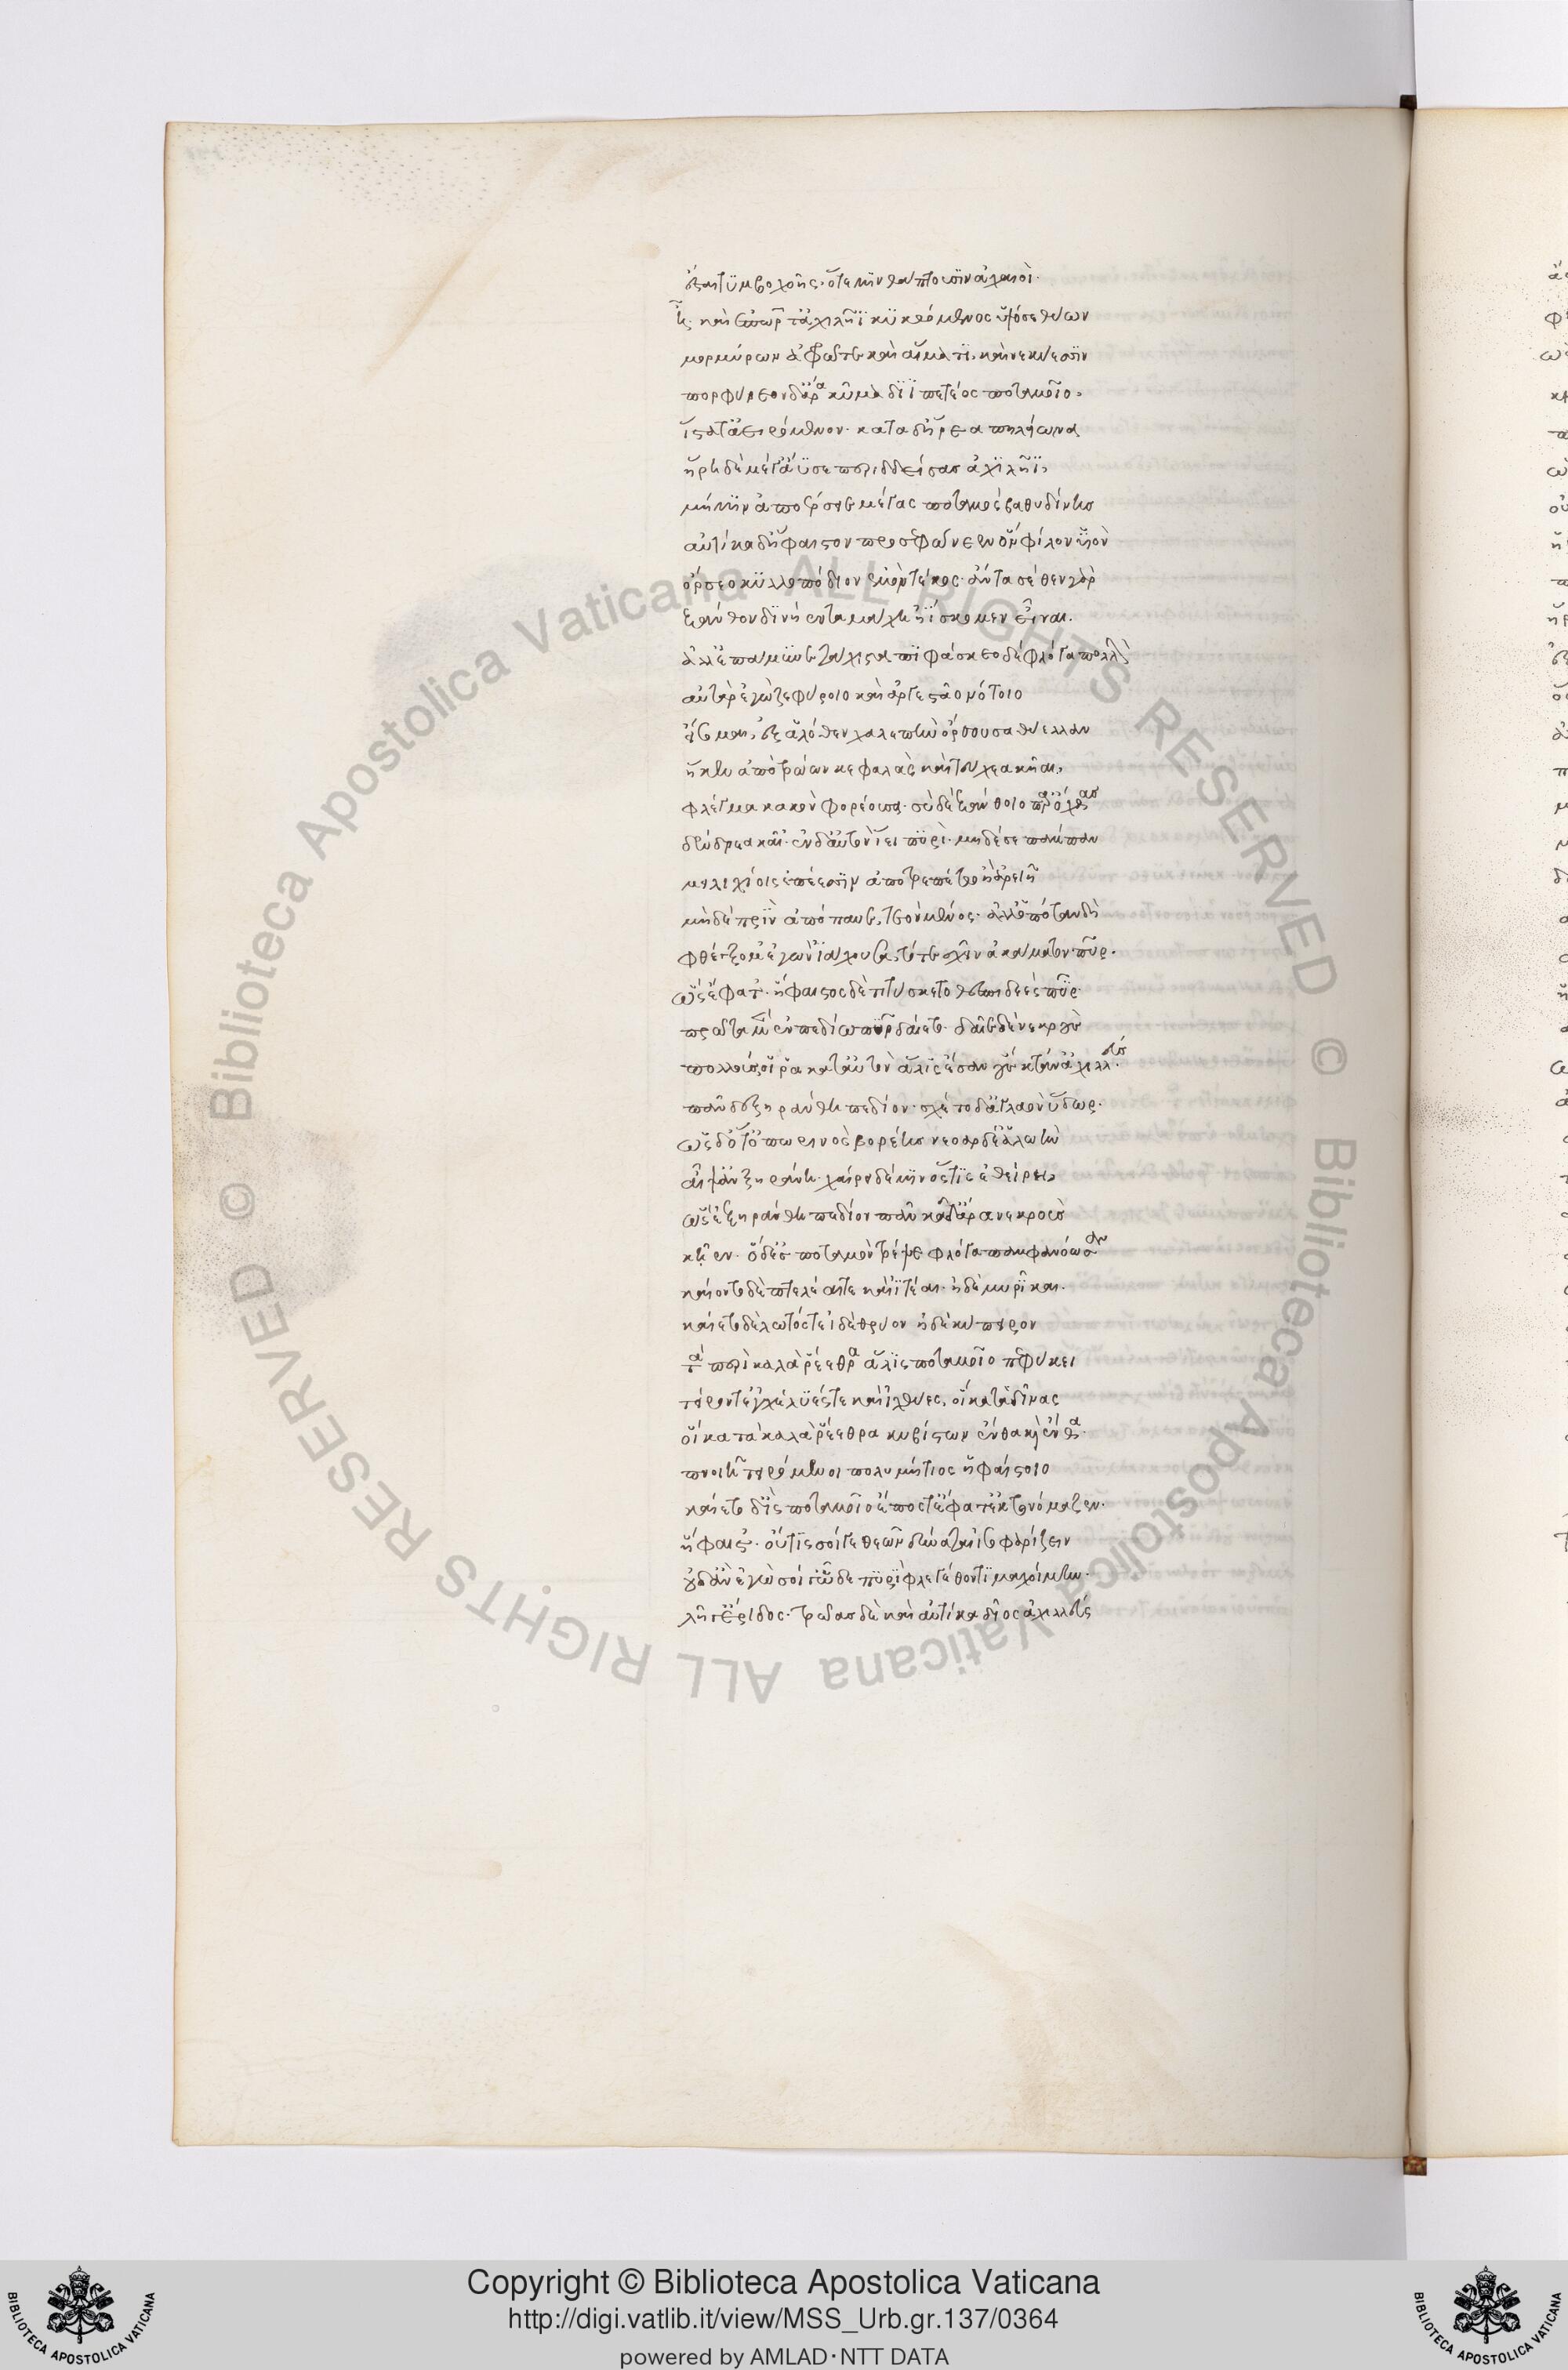 ἔσται τυμβοχοῆς· ὅτε μιν θάπτωσιν ἀχαιοί·
ἦ, καὶ ἐπῶρτ' ἀχιλῆϊ κυκώμενος ὑψόσε θύων
μορμύρων ἀφρῶτε καὶ αἵματι, καὶ νεκύεσσιν
πορφύρεον δ' ἄρα κῦμα διϊπετέος ποταμοῖο,
ἵστατ' ἀειρόμενον· κατὰ δ' ἥρεε πηλείωνα
ἥρη δὲ μέγ' ἄϋσε περιδδείσασ' ἀχιλῆϊ,
μή μιν ἀποέρσειε μέγας ποταμὸς βαθυδίνης
αὐτίκα δ' ἥφαιστον προσεφώνεεν ὃν φίλον υἱὸν
ὄρσεο κυλλοπόδιον ἐμὸν τέκος· ἄντα σέθεν γὰρ
ξάνθον δινήεντα μάχῃ ἠΐσκομεν εἶναι.
ἀλλ' ἐπάμυνε τάχιστα πιφάσκεο δὲ φλόγα πολλὴν
αὐτὰρ ἐγὼ ζεφύροιο καὶ ἀργεστᾶο νότοιο
εἴσομαι, ἐξ ἁλόθεν χαλεπὴν ὄρσουσα θύελλαν
ἥ κεν ἀπὸ τρώων κεφαλὰς καὶ τεύχεα κήαι,
φλέγμα κακὸν φορέουσα· σὺ δὲ ξάνθοιο παρ' ὄχθας
δένδρεα καῖ'· ἐν δ' αὐτὸν ἵει πυρί· μηδέ σε πάμπαν
μειλιχίοις ἐπέεσσιν ἀποτρεπέτω ἢ ἀρειῇ
μὴ δὲ πρὶν ἀπόπαυε, τεὸν μένος· ἀλλ' ὁπόταν δὴ
φθέγξομ' ἐγὼν ἰάχουσα, τότε σχεῖν ἀκάματον πῦρ.
ὣς ἔφατ'· ἥφαιστος δὲ τιτύσκετο θεσπιδαὲς πῦρ·
πρῶτα μὲν ἐν πεδίω πῦρ δαίετο· δαῖε δὲ νεκροὺς
πολλοὺς οἵ ῥα κατ' αὐτὸν ἅλις ἔσαν οὓς κτάν' ἀχιλλεύς·
πᾶν δ' ἐξηράνθη πεδίον· σχέτο δ' ἀγλαὸν ὕδωρ·
ὡς δ' ὅτ' ὀπωρινὸς βορέης νεοαρδέ' ἀλωὴν
αἶψ' ἂν ξηράνῃ· χαίρει δέ μιν ὅστις ἐθείρει,
ὣς ἐξηράνθη πεδίον πᾶν κὰδ δ' ἄρα νεκροὺς
κῆεν· ὁ δ' ἐς ποταμὸν τρέψε φλόγα παμφανόωσαν
καίοντο δὲ πτελέαι τε καὶ ἰτέαι· ἠδὲ μυρῖκαι·
καίετο δὲ λωτός τε ἰδὲ θρύον ἠδὲ κύπειρον
τὰ περὶ καλὰ ῥέεθρα ἅλις ποταμοῖο πεφύκει
τείροντ' ἐγχέλυές τε καὶ ἰχθύες, οἳ κατὰ δίνας
οἳ κατὰ καλὰ ῥέεθρα κυβίστων ἔνθα καὶ ἔνθα·
πνοιῇ τειρόμενοι πολυμήτιος ἡφαίστοιο
καίετο δ' ἲς ποταμοῖο ἔπος τ' ἔφατ' ἔκ τ' ὀνόμαζεν·
ἥφαιστ'· οὔτις σοί γε θεῶν δύναται ἀντιφερίζειν
οὐδ' ἂν ἐγὼ σοί γ' ὧδε πυρὶ φλεγέθοντι μαχοίμην·
λῆγ' ἔριδος· τρῶας δὲ καὶ αὐτίκα δῖος ἀχιλλεύς
Copyright © Biblioteca Apostolica Vaticana
http://digi.vatlib.it/view/MSS_Urb.gr.137/0364
powered by AMLAD·NTT DATA